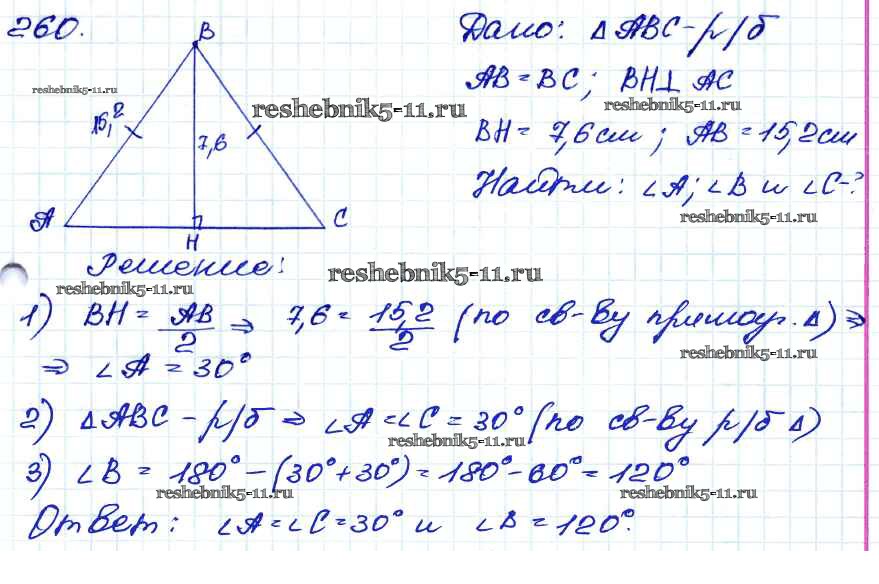 260.
B
reshebnik5-11.ru
15,2
7,6
A
H
C
reshebnik5-11.ru
Дано: △ABC - р/б
AB = BC; BH⊥ AC
reshebnik5-11.ru
BH = 7,6 см; AB = 15,2 см
Найти: ∠A; ∠B и ∠C-?
reshebnik5-11.ru
Решение:
reshebnik5-11.ru
reshebnik5-11.ru
1) BH = AB/2 ⇒ 7,6 = 15,2/2 (по св-ву прямоуг. △) ⇒
reshebnik5-11.ru
⇒ ∠A = 30°
2) △ABC - р/б ⇒ ∠A = ∠C = 30° (по св-ву р/б △)
reshebnik5-11.ru
3) ∠B = 180° - (30° + 30°) = 180° - 60° = 120°
reshebnik5-11.ru
reshebnik5-11.ru
Ответ: ∠A = ∠C = 30° и ∠B = 120°.